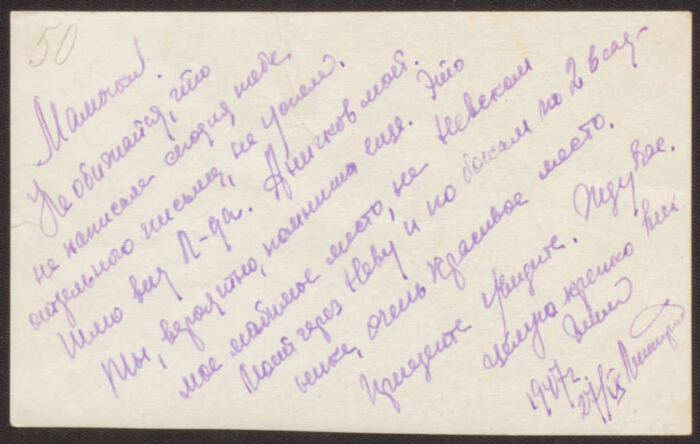 50
Мамочка!
Не обижайся, что
не написала сегодня тебе
отдельного письма, не успела.
Шлю вид Л-да. Аничков мост.
Ты, вероятно, помнишь еще. Это
мое любимое место, на Невском
Мост через Неву и по бокам по 2 всад-
ника, очень красивое место.
Приедете увидите. Жду Вас.
Целую крепко всех
1947 г.
27/IX